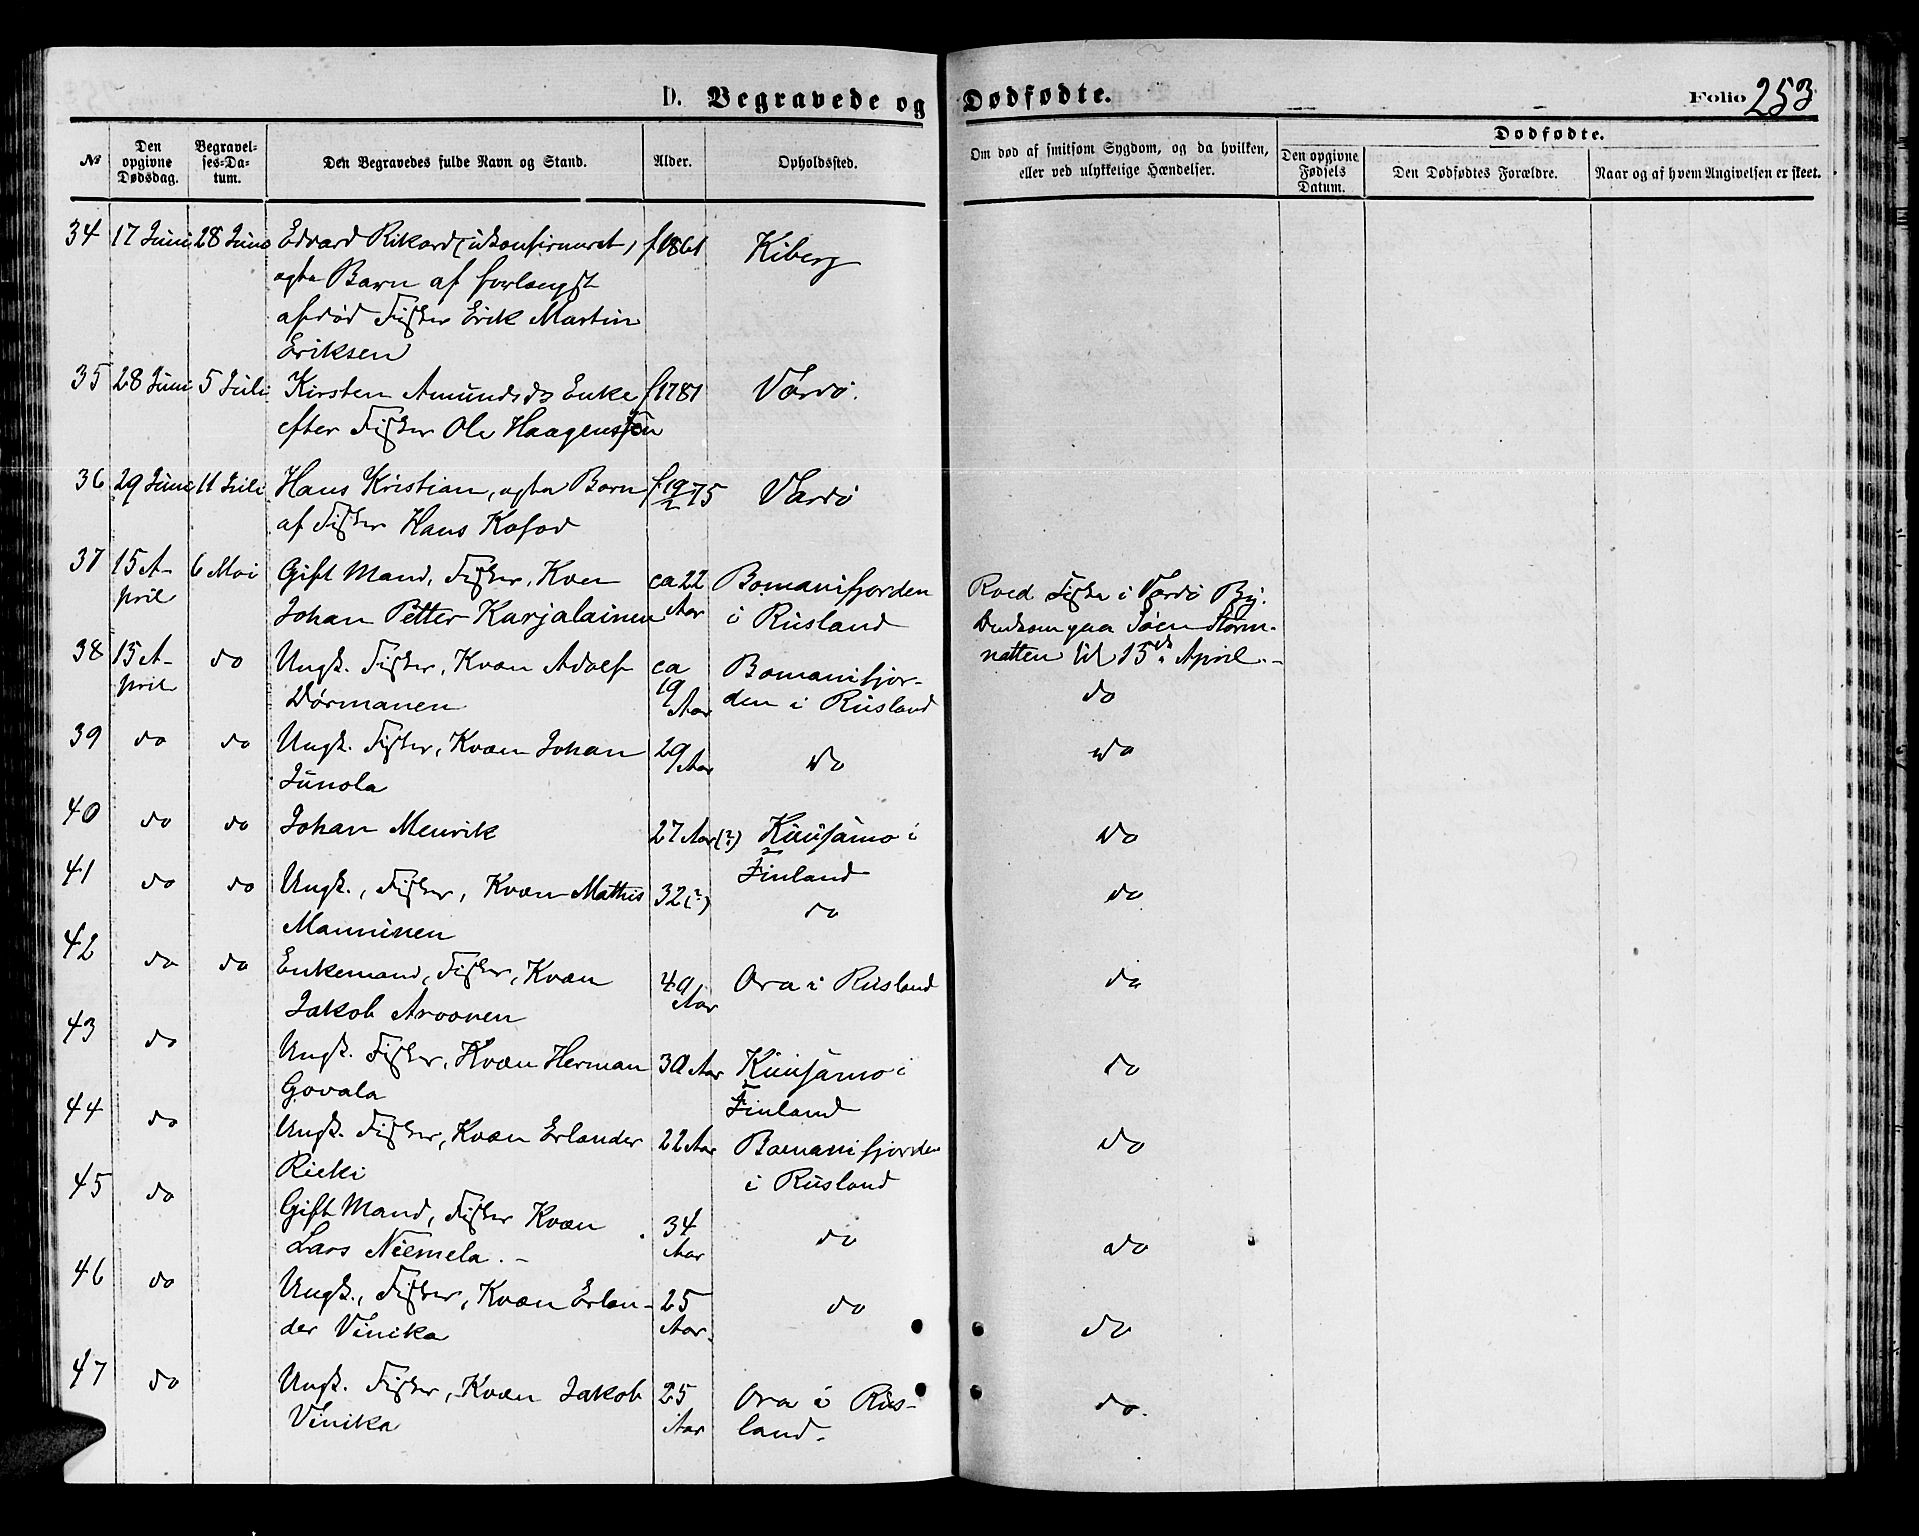 D. Begravede og Dødfødte.
Folio 253
No
Den opgivne Dødsdag.
Begravelses-Datum.
Den Begravedes fulde Navn og Stand.
Alder.
Opholdssted.
Om død af smitsom Sygdom, og da hvilken, eller ved ulykkelige Hændelser.
Dødfødte.
Den opgivne Fødsels Datum.
Den Dødfødtes Forældre.
Naar og af hvem Angivelsen er skeet.
34 17 Juni 28 Juni Edvard Rikard (ukonfirmeret) f. 1861 Kiberg
ægte Barn af forlængst
afdød Fisker Erik Martin
Eriksen
35 28 Juni 5 Juli Kirsten Amundsd. Enke f 1781 Vardø.
efter Fisker Ole Haagenssen
36 29 Juni 11 Juli Hans Kristian, ægte Barn f. 19/2 75 Vardø
af Fisker Hans Kofod
37 15 A- 6 Mai Gift Mand, Fisker, Kvæn ca 22 Bomanifjorden
pril Johan Petter Karjalainen Aar i Rusland
Roed Fiske i Vardø By.
paa Søen Storm-
natten til 15de April.-
38 15 A- do Ungk. Fisker, Kvæn Adolf ca Bomanifjor-
pril Dørmanen 19 Aar den i Rusland do
39 do do Ungk. Fisker, Kvæn Johan 29 Aar do do
Junola
40 do do Johan Menrik 27 Aar (?) Kuusamo i do
Finland
41 do do Ungk., Fisker, Kvæn Mathis 32 (?) do do
Manninen
42 do do Enkemand, Fisker, Kvæn 40 Ora i Rusland do
Jakob Arvonen Aar
43 do Ungk. Fisker, Kvæn Herman 30 Aar Kuusamo i do
Govala Finland
44 do Ungk. Fisker, Kvæn Erlander 22 Aar Bomanifjorden do
Rieki i Rusland
45 do Gift Mand, Fisker Kvæn 34 do do
Lars Niemela.- Aar
46 do Ungk., Fisker, Kvæn Erlan- 25 do do
der Vinika Aar.
47 do Ungk. Fisker, Kvæn Jakob 25 Ora i Rus- do.
Vinika Aar land.